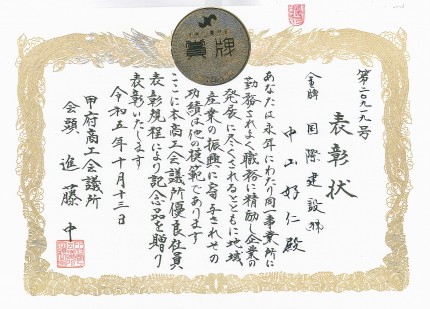 賞牌
第二〇九一九号
表彰状
金牌 国際建設㈱
中山好仁殿
あなたは永年にわたり同一事業所に
勤務されよく職務に精励し企業の
発展に尽くされるとともに地域
産業の振興に寄与されその
功績は他の模範であります
ここに本商工会議所優良社員
表彰規程により記念品を贈り
表彰いたします
令和五年十月十三日
甲府商工会議所
会頭 進藤中